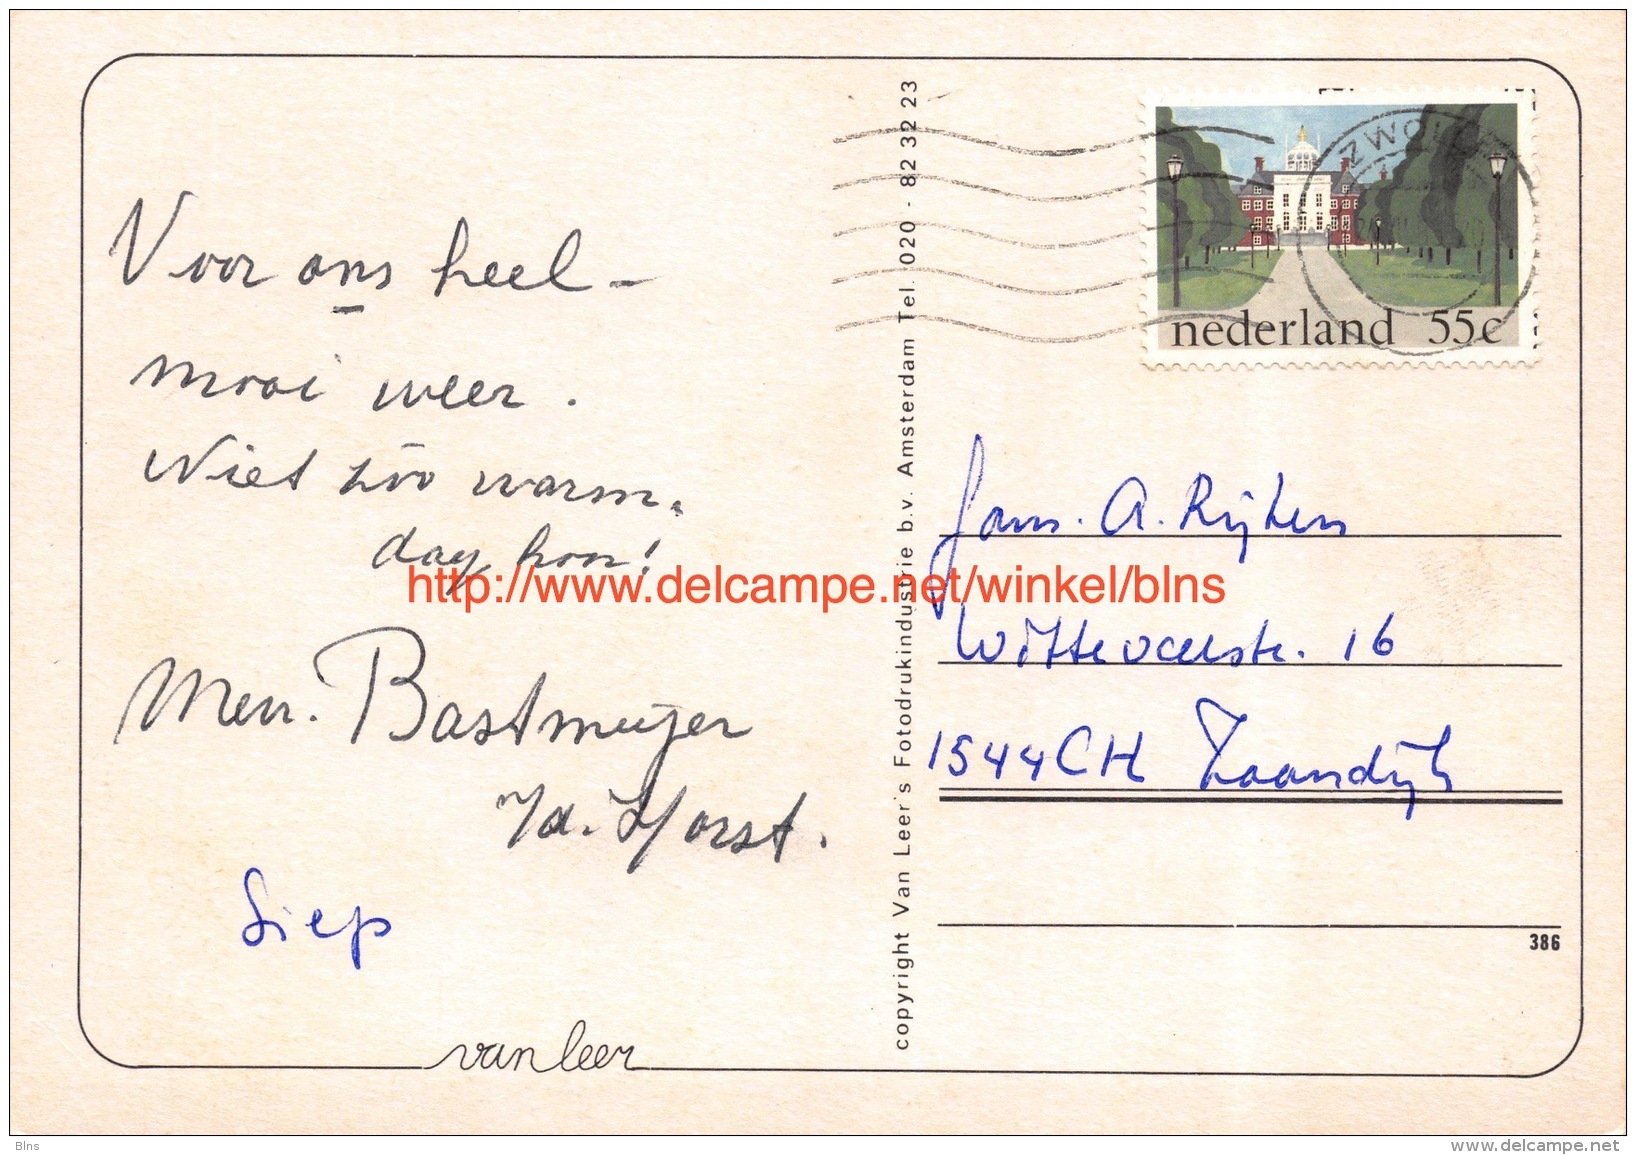 Voor ons heel -
mooi weer.
Niet zóó warm.
dag hoor!
Men. Bastmeijer
v/d. Horst.
Siep
van leer
copyright Van Leer's Fotodrukindustrie b.v. Amsterdam Tel. 020 - 82 32 23
ZWOLLE
nederland 55c
Jam. A. Rijken
Wittevaerstr. 16
1544 CH Zaandijk
386
http://www.delcampe.net/winkel/blns
Blns
www.delcampe.net